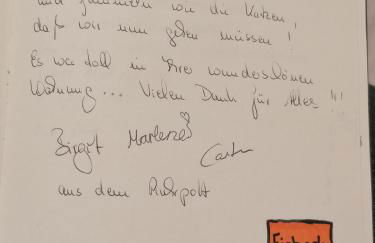 und jammern wie die Katzen,
daß wir nun gehen müssen!
Es war toll in Ihrer wunderschönen
Wohnung... Vielen Dank für Alles!!!
Birgit Marlene
aus dem Ruhrpott